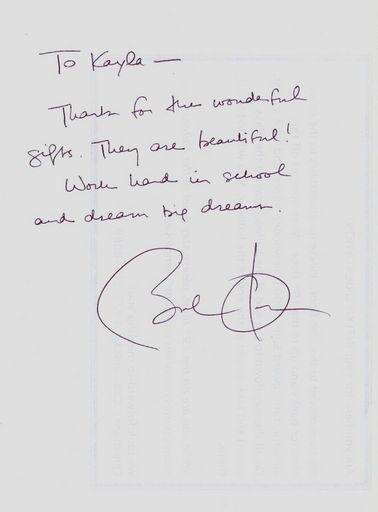 To Kayla —
Thanks for the wonderful
gifts. They are beautiful!
Work hard in school
and dream big dreams.